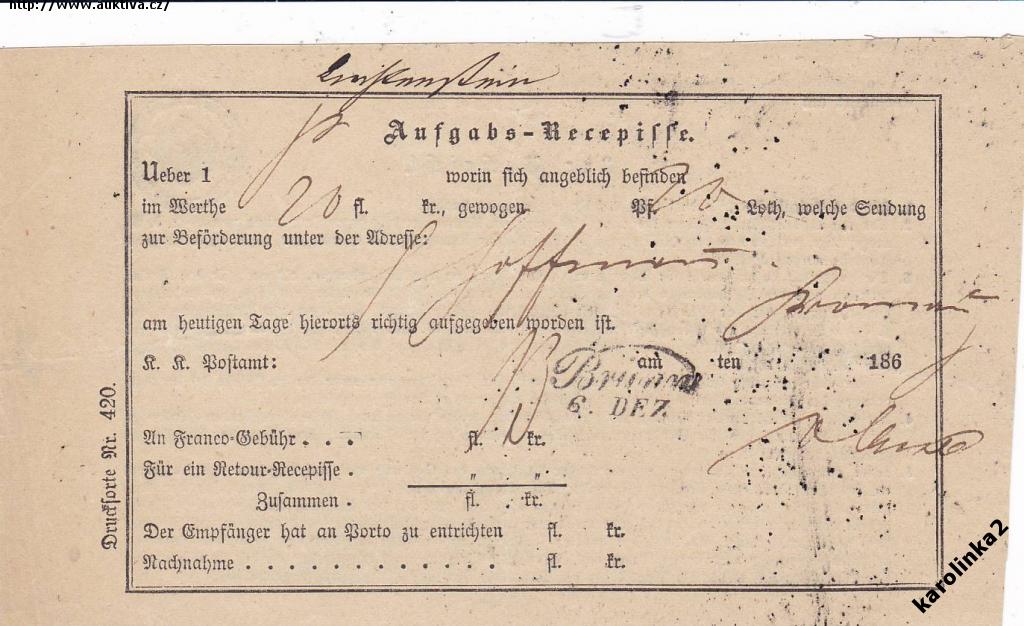 http://www.auktiva.cz/
Aufgabs-Recepisse.
Ueber 1 worin sich angeblich befinden
im Werthe 20 fl. kr., gewogen Pf. 20 Loth, welche Sendung
zur Beförderung unter der Adresse: Hoffmann
am heutigen Tage hierorts richtig aufgegeben worden ist.
K. K. Postamt: am ten 186
Brünn
6. DEZ.
An Franco-Gebühr . . . fl. kr.
Für ein Retour-Recepisse . " "
Zusammen . fl. kr.
Der Empfänger hat an Porto zu entrichten fl. kr.
Nachnahme . . . . . . . . . . . . fl. kr.
Drucksorte Nr. 420.
karolinka2